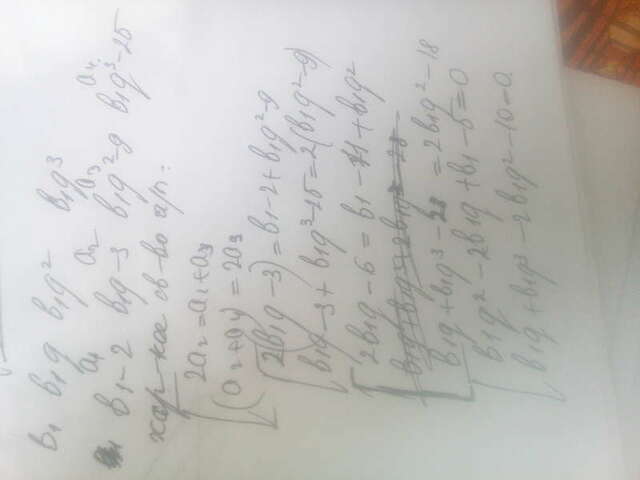 b₁ b₁q b₁q² b₁q³
a₁ a₂ a₃ a₄
b₁-2 b₁q-3 b₁q²-9 b₁q³-25
хар-кое св-во а/п:
2a₂=a₁+a₃
a₂+a₄=2a₃
2(b₁q-3)=b₁-2+b₁q²-9
b₁q-3+b₁q³-25=2(b₁q²-9)
2b₁q-6=b₁-11+b₁q²
b₁q+b₁q³-28=2b₁q²-18
b₁q²-2b₁q+b₁-5=0
b₁q+b₁q³-2b₁q²-10=0